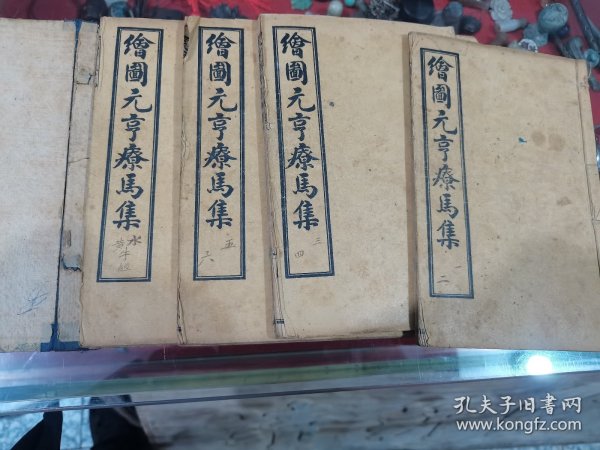 繪圖元亨療馬集
水
黃牛經
繪圖元亨療馬集
五
六
繪圖元亨療馬集
三
四
繪圖元亨療馬集
一
二
孔夫子旧書网
www.kongfz.com